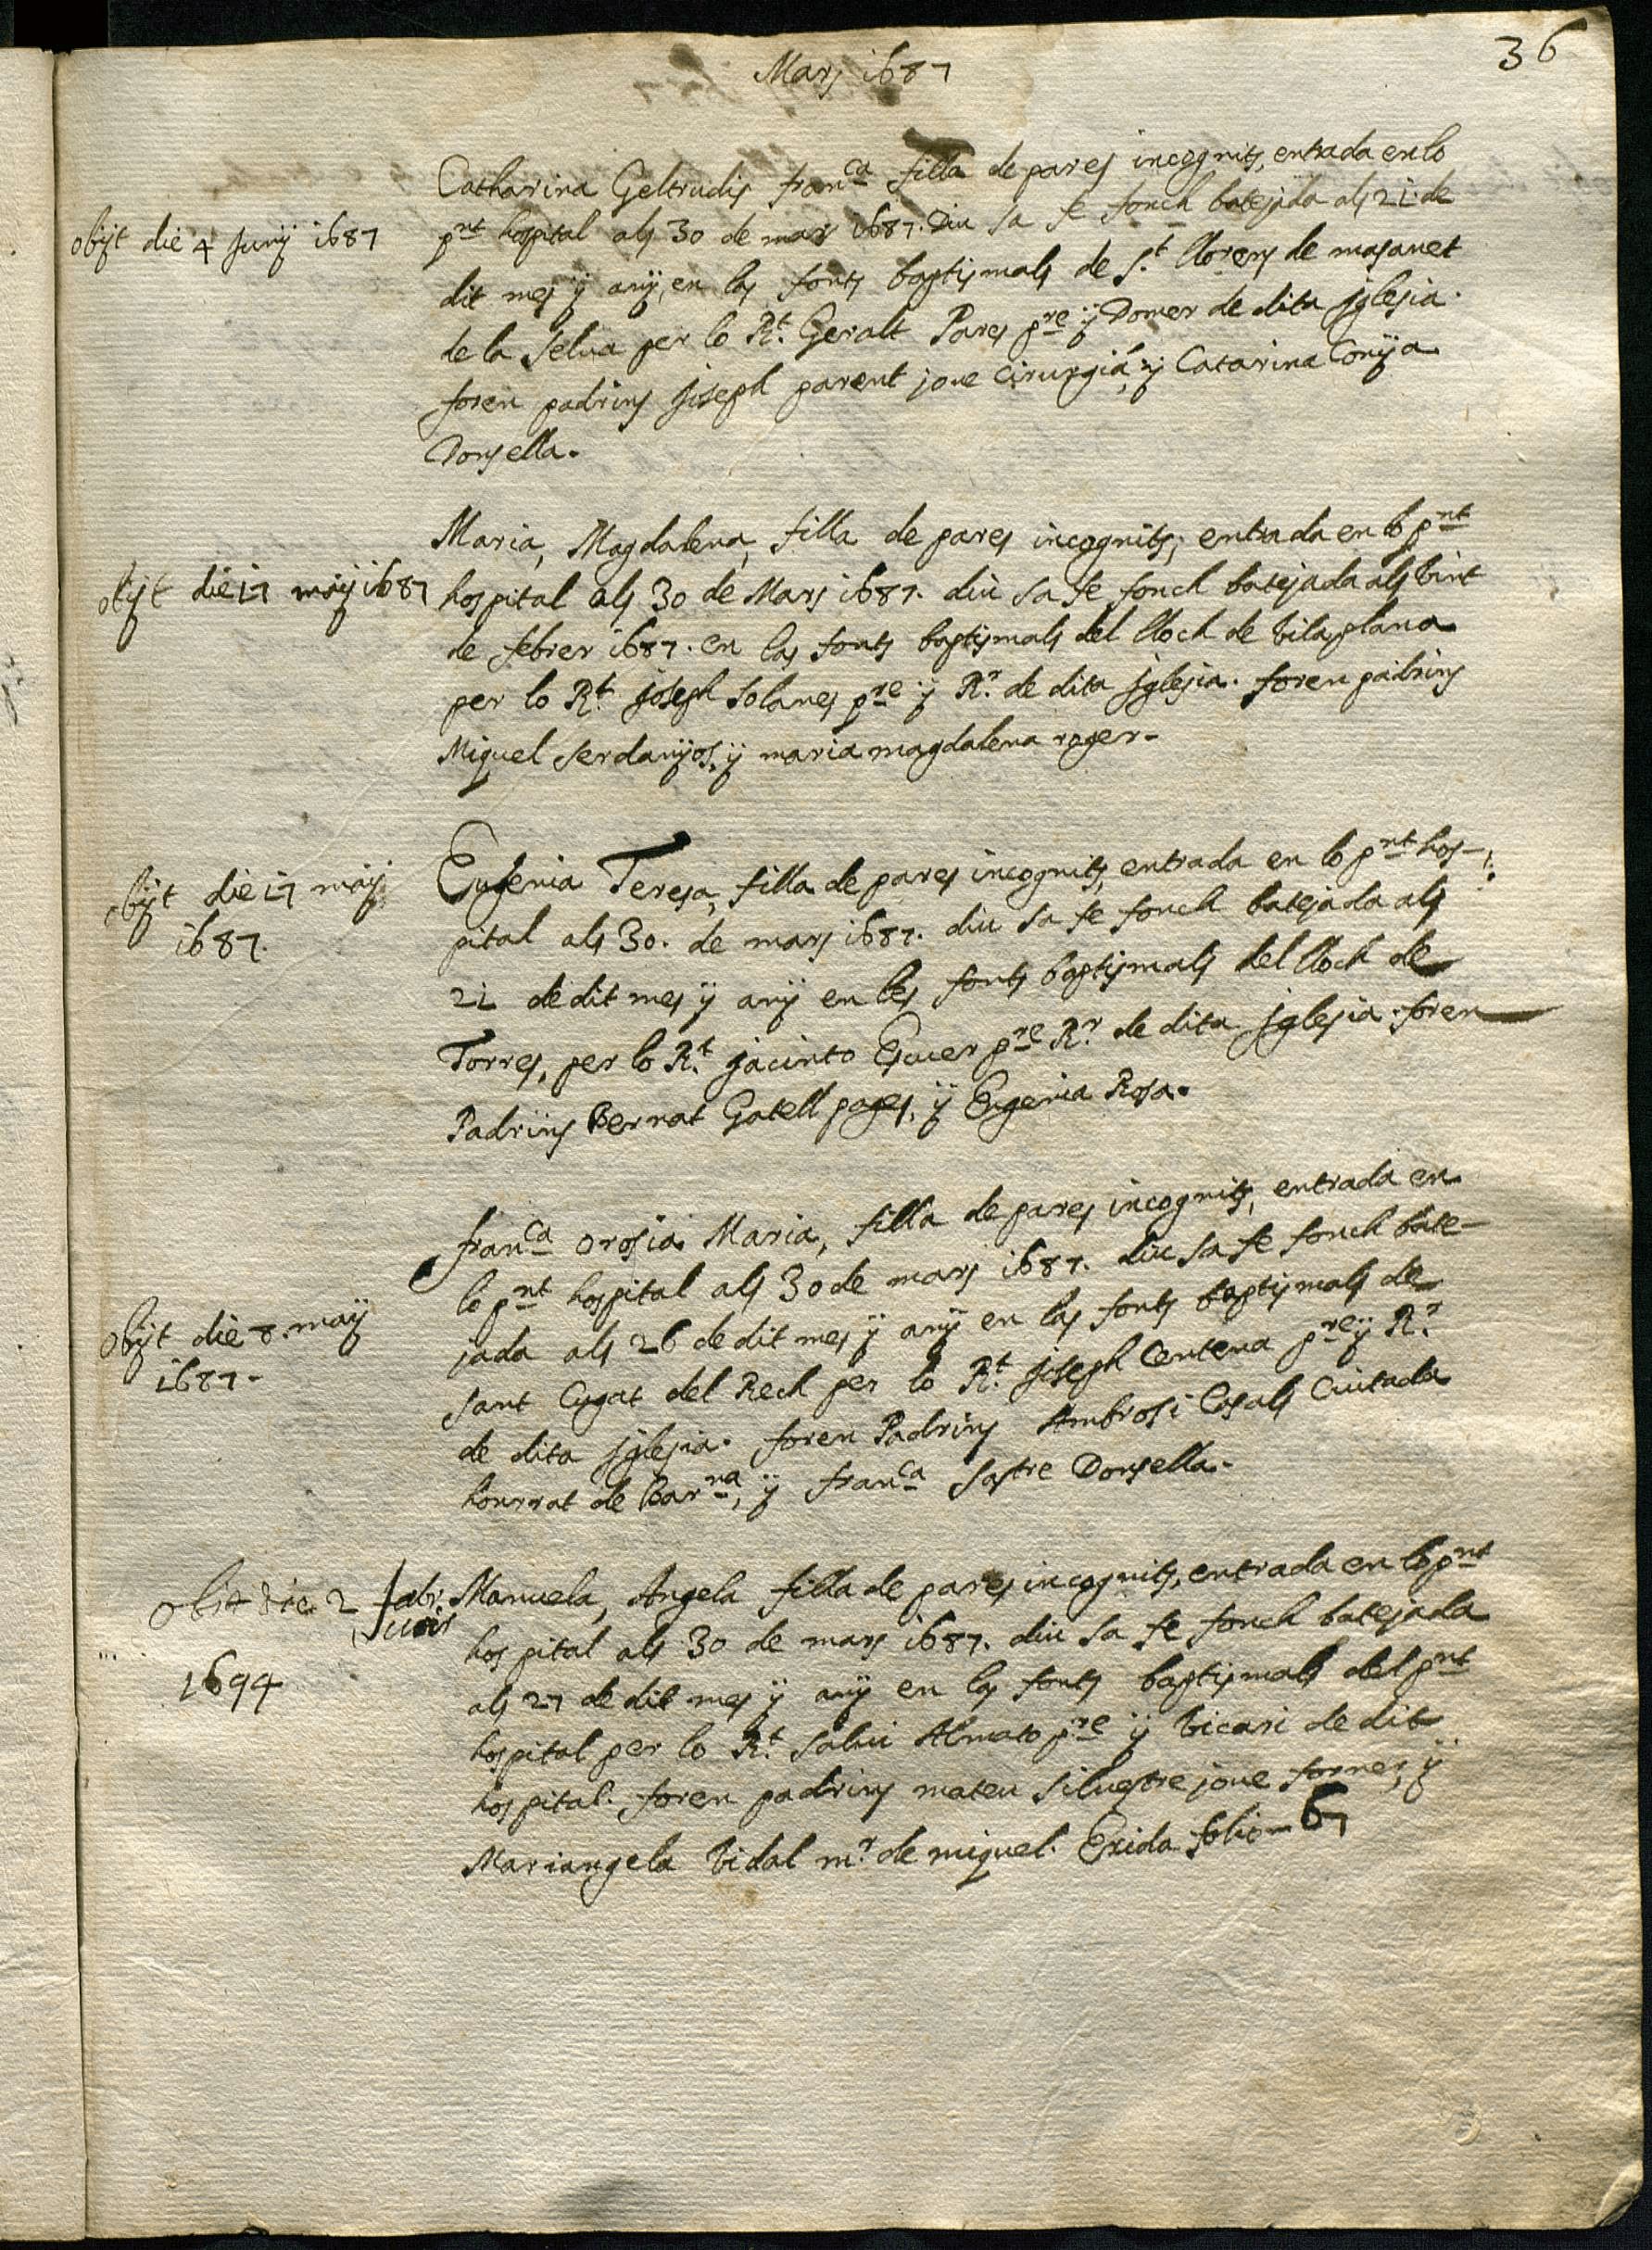 36
Mars 1687
obijt die 4 Junij 1687
Catharina Geltrudis fran^ca filla de pares incognits, entrada en lo
p^nt hospital als 30 de mars 1687. Diu sa fe fonch batejada als 21 de
dit mes ÿ anÿ, en las fonts baptismals de S.^t llorens de masanet
de la selua per lo R.^t Geralt Pares p^re ÿ Domer de dita jglesia.
foren padrins Joseph parent joue Cirurgiá, ÿ Catarina Conÿa
Donsella.
obijt die 17 maÿ 1687
Maria, Magdalena, filla de pares incognits, entrada en lo p^nt
hospital als 30 de Mars 1687. diu sa fe fonch batejada als vint
de febrer 1687. en las fonts baptismals del lloch de vilaplana
per lo R.^t Joseph solanes p^re ÿ R.^r de dita jglesia. foren padrins
Miquel serdanÿos, ÿ maria magdalena roger-
obijt die 17 maÿ
1687.
Eugenia Teresa, filla de pares incognits, entrada en lo p^nt hos-
pital als 30. de mars 1687. diu sa fe fonch batejada als
21 de dit mes ÿ anÿ en les fonts baptismals del lloch de
Torres, per lo R.^t jacinto Escuer p^re R.^r de dita jglesia. foren
Padrins Bernat Gatell pages, ÿ Eugenia Rosa.
obijt die 8. maÿ
1687-
fran^ca orosia Maria, filla de pares incognits, entrada en
lo p^nt hospital als 30 de mars 1687. diu sa fe fonch bate-
jada als 26 de dit mes ÿ anÿ en las fonts baptismals de
sant Cugat del Rech per lo R.^t Joseph Centena p^re ÿ R.^r
de dita jglesia. foren Padrins Ambrosi Casals Ciutada
honrrat de Bar^na, ÿ fran^ca sastre Donsella.
Obit die 2
1694
Manuela, Angela filla de pares incognits, entrada en lo p^nt
hospital als 30 de mars 1687. diu sa fe fonch batejada
als 27 de dit mes ÿ anÿ en las fonts baptismals del p^nt
hospital per lo R.^t saluii Almato p^re ÿ vicari de dit
hospital. foren padrins mateu siluestre joue forner, ÿ
Mariangela vidal m.^r de miquel. Exida folio 67